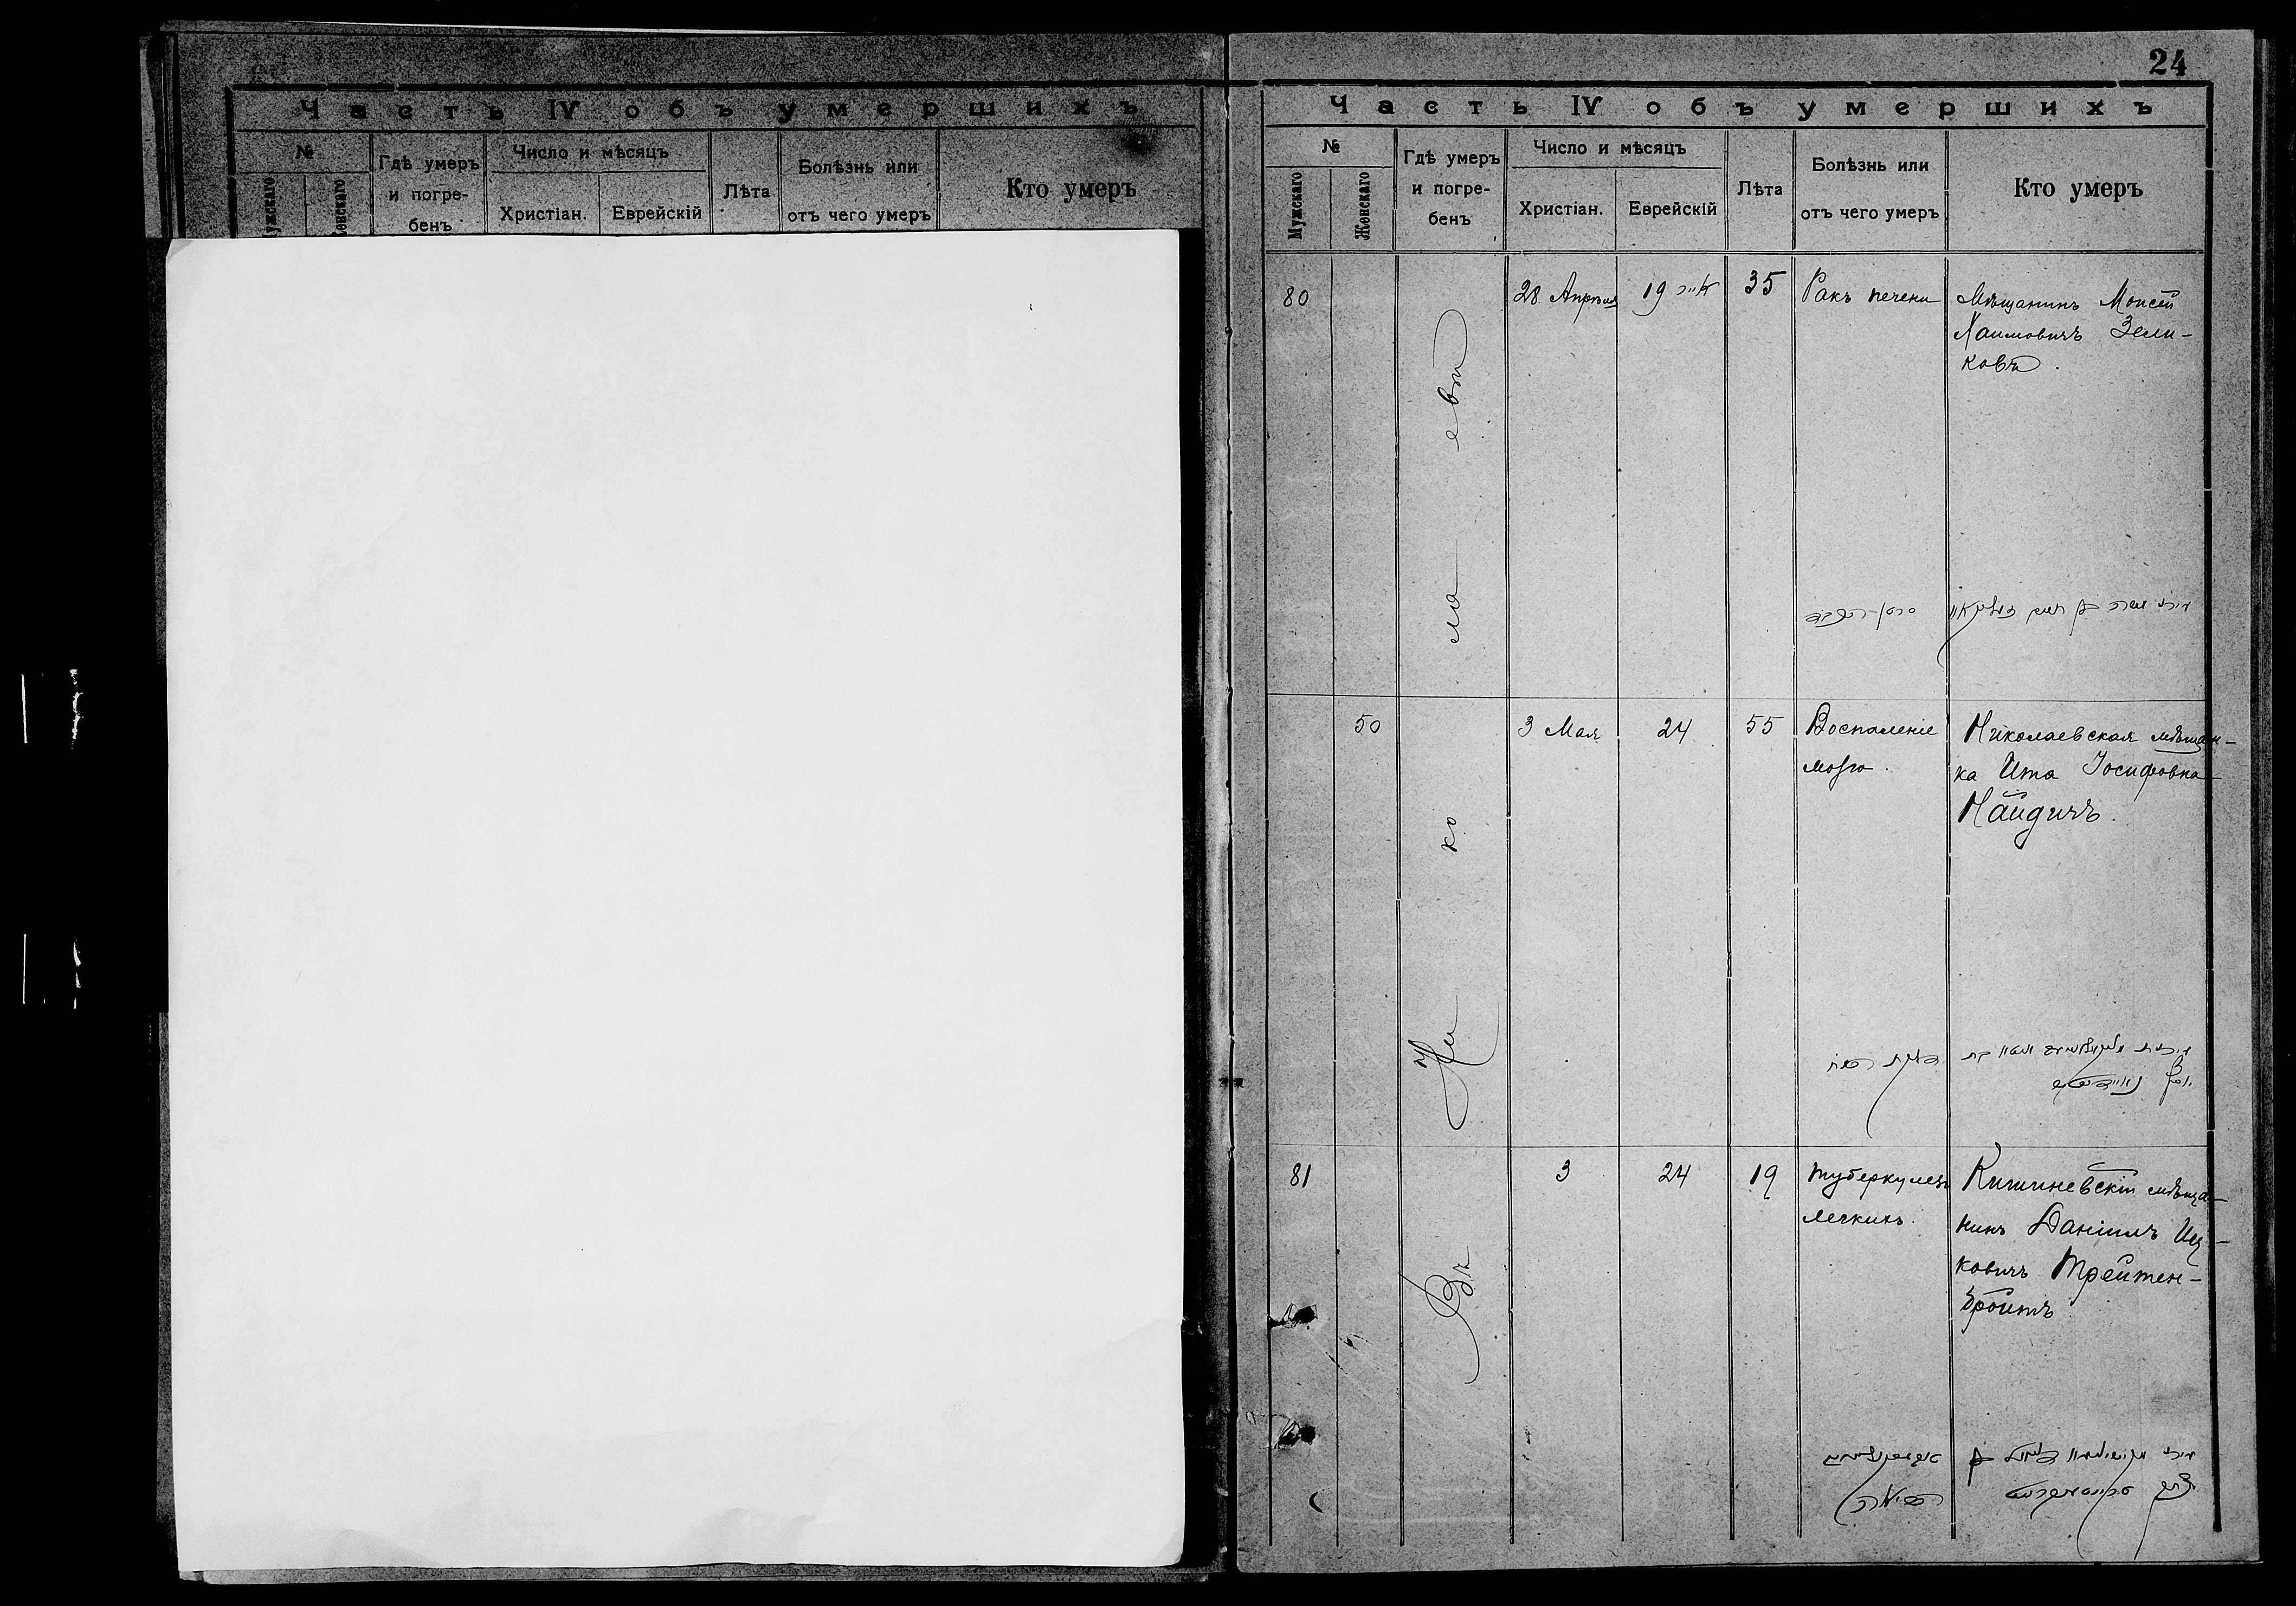 Часть IV объ умершихъ
№
Мужскаго
Женскаго
Гдѣ умеръ
и погре-
бенъ
Число и мѣсяцъ
Христіан.
Еврейскій
Лѣта
Болѣзнь или
отъ чего умеръ
Кто умеръ
24
Часть IV объ умершихъ
№
Мужскаго
Женскаго
Гдѣ умеръ
и погре-
бенъ
Число и мѣсяцъ
Христіан.
Еврейскій
Лѣта
Болѣзнь или
отъ чего умеръ
Кто умеръ
Въ Николаевѣ
80
28 Апрѣля
19 אייר
35
Ракъ печени
Мѣщанинъ Моисей
Хаимовичъ Зели-
ковъ.
50
3 Мая
24
55
Воспаленіе
мозга.
Николаевская мѣщан-
ка Ита Іосифовна
Найдичъ.
81
3
24
19
туберкулезъ
легкихъ.
Кишиневскій мѣща-
нинъ Даніилъ Иц-
ковичъ Трейтен-
бройтъ